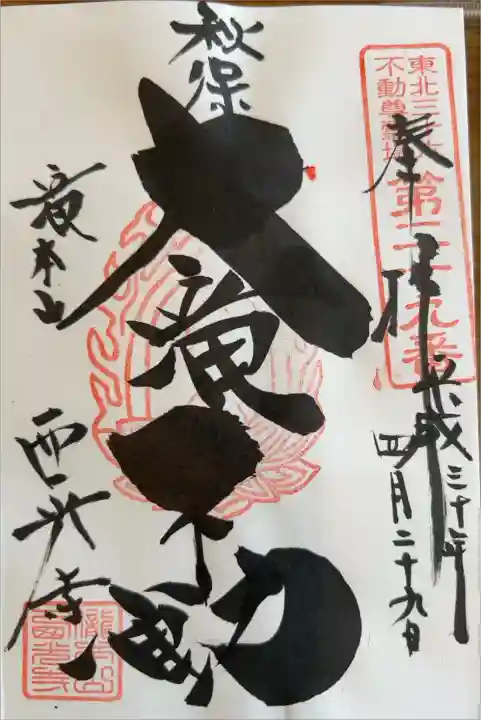 奉拝
平成三十年
四月二十九日
東北三十六
不動尊霊場
第二十九番
秋保
大滝不動
滝本山
西光寺
瀧本山
西光寺